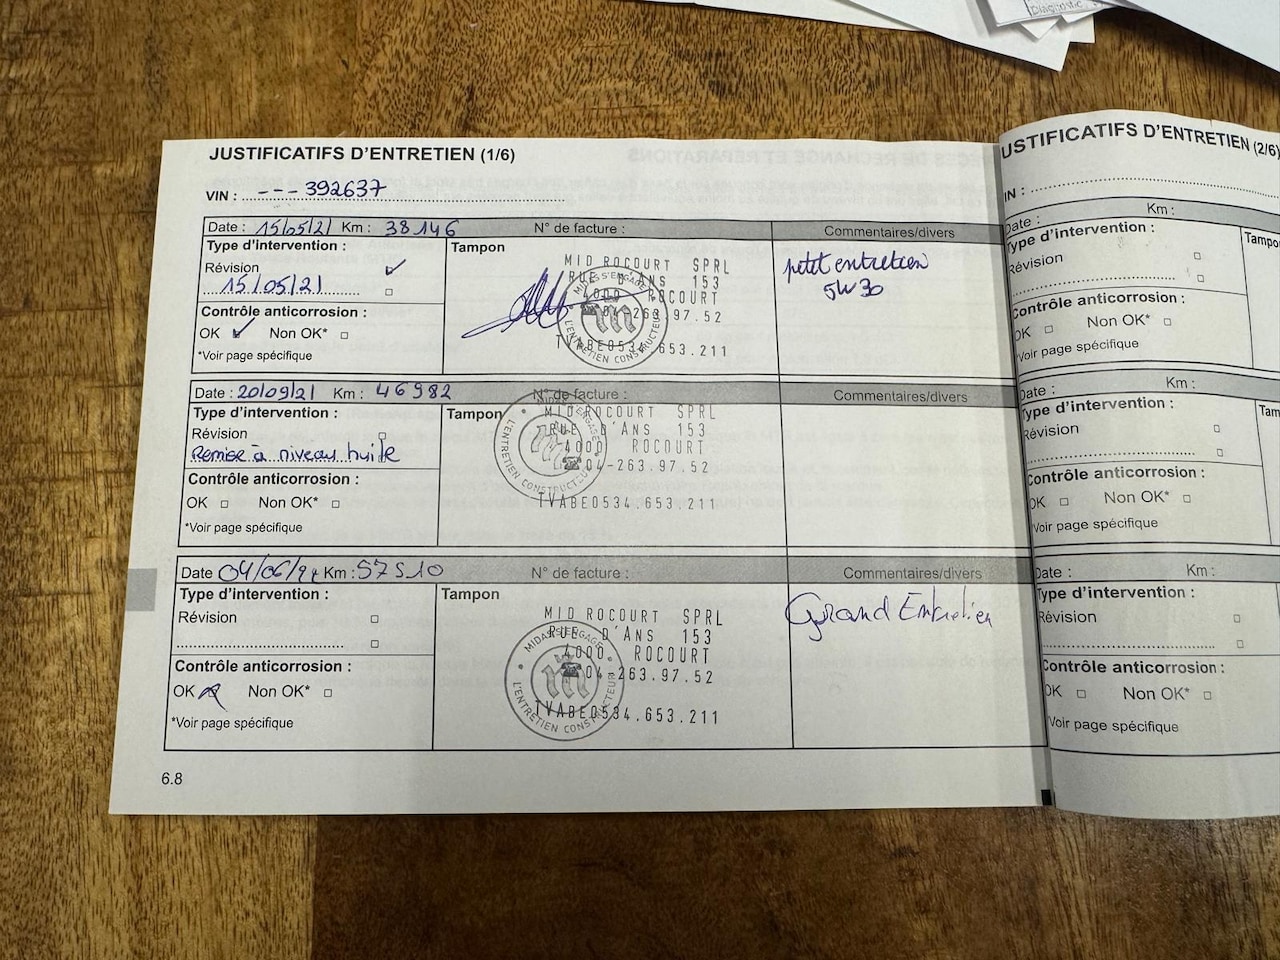 Diagnostic
JUSTIFICATIFS D'ENTRETIEN (1/6)
VIN : --- 392637
Date : 15/05/21 Km : 38146 N° de facture : Commentaires/divers
Type d'intervention :
Révision
15/05/21
Contrôle anticorrosion :
OK Non OK*
*Voir page spécifique
Tampon
MID ROCOURT SPRL
RUE D'Ans 153
4000 ROCOURT
04-263.97.52
TVABE0534.653.211
MIDAS S'ENGAGE
L'ENTRETIEN CONSTRUCTEUR
petit entretien
5W30
Date : 20/09/21 Km : 46982 N° de facture : Commentaires/divers
Type d'intervention :
Révision
Remise a niveau huile
Contrôle anticorrosion :
OK Non OK*
*Voir page spécifique
Tampon
MID ROCOURT SPRL
RUE D'Ans 153
4000 ROCOURT
04-263.97.52
TVABE0534.653.211
L'ENTRETIEN CONSTRUCTEUR
Date 04/06/ Km : 57510 N° de facture : Commentaires/divers
Type d'intervention :
Révision
Contrôle anticorrosion :
OK Non OK*
*Voir page spécifique
Tampon
MID ROCOURT SPRL
RUE D'Ans 153
4000 ROCOURT
04-263.97.52
TVABE0534.653.211
MIDAS S'ENGAGE
L'ENTRETIEN CONSTRUCTEUR
Grand Entretien
6.8
USTIFICATIFS D'ENTRETIEN (2/6)
IN :
Date : Km :
Type d'intervention :
Révision
Contrôle anticorrosion :
OK Non OK*
*Voir page spécifique
Tampo
Date : Km :
Type d'intervention :
Révision
Contrôle anticorrosion :
OK Non OK*
*Voir page spécifique
Tam
Date : Km :
Type d'intervention :
Révision
Contrôle anticorrosion :
OK Non OK*
*Voir page spécifique